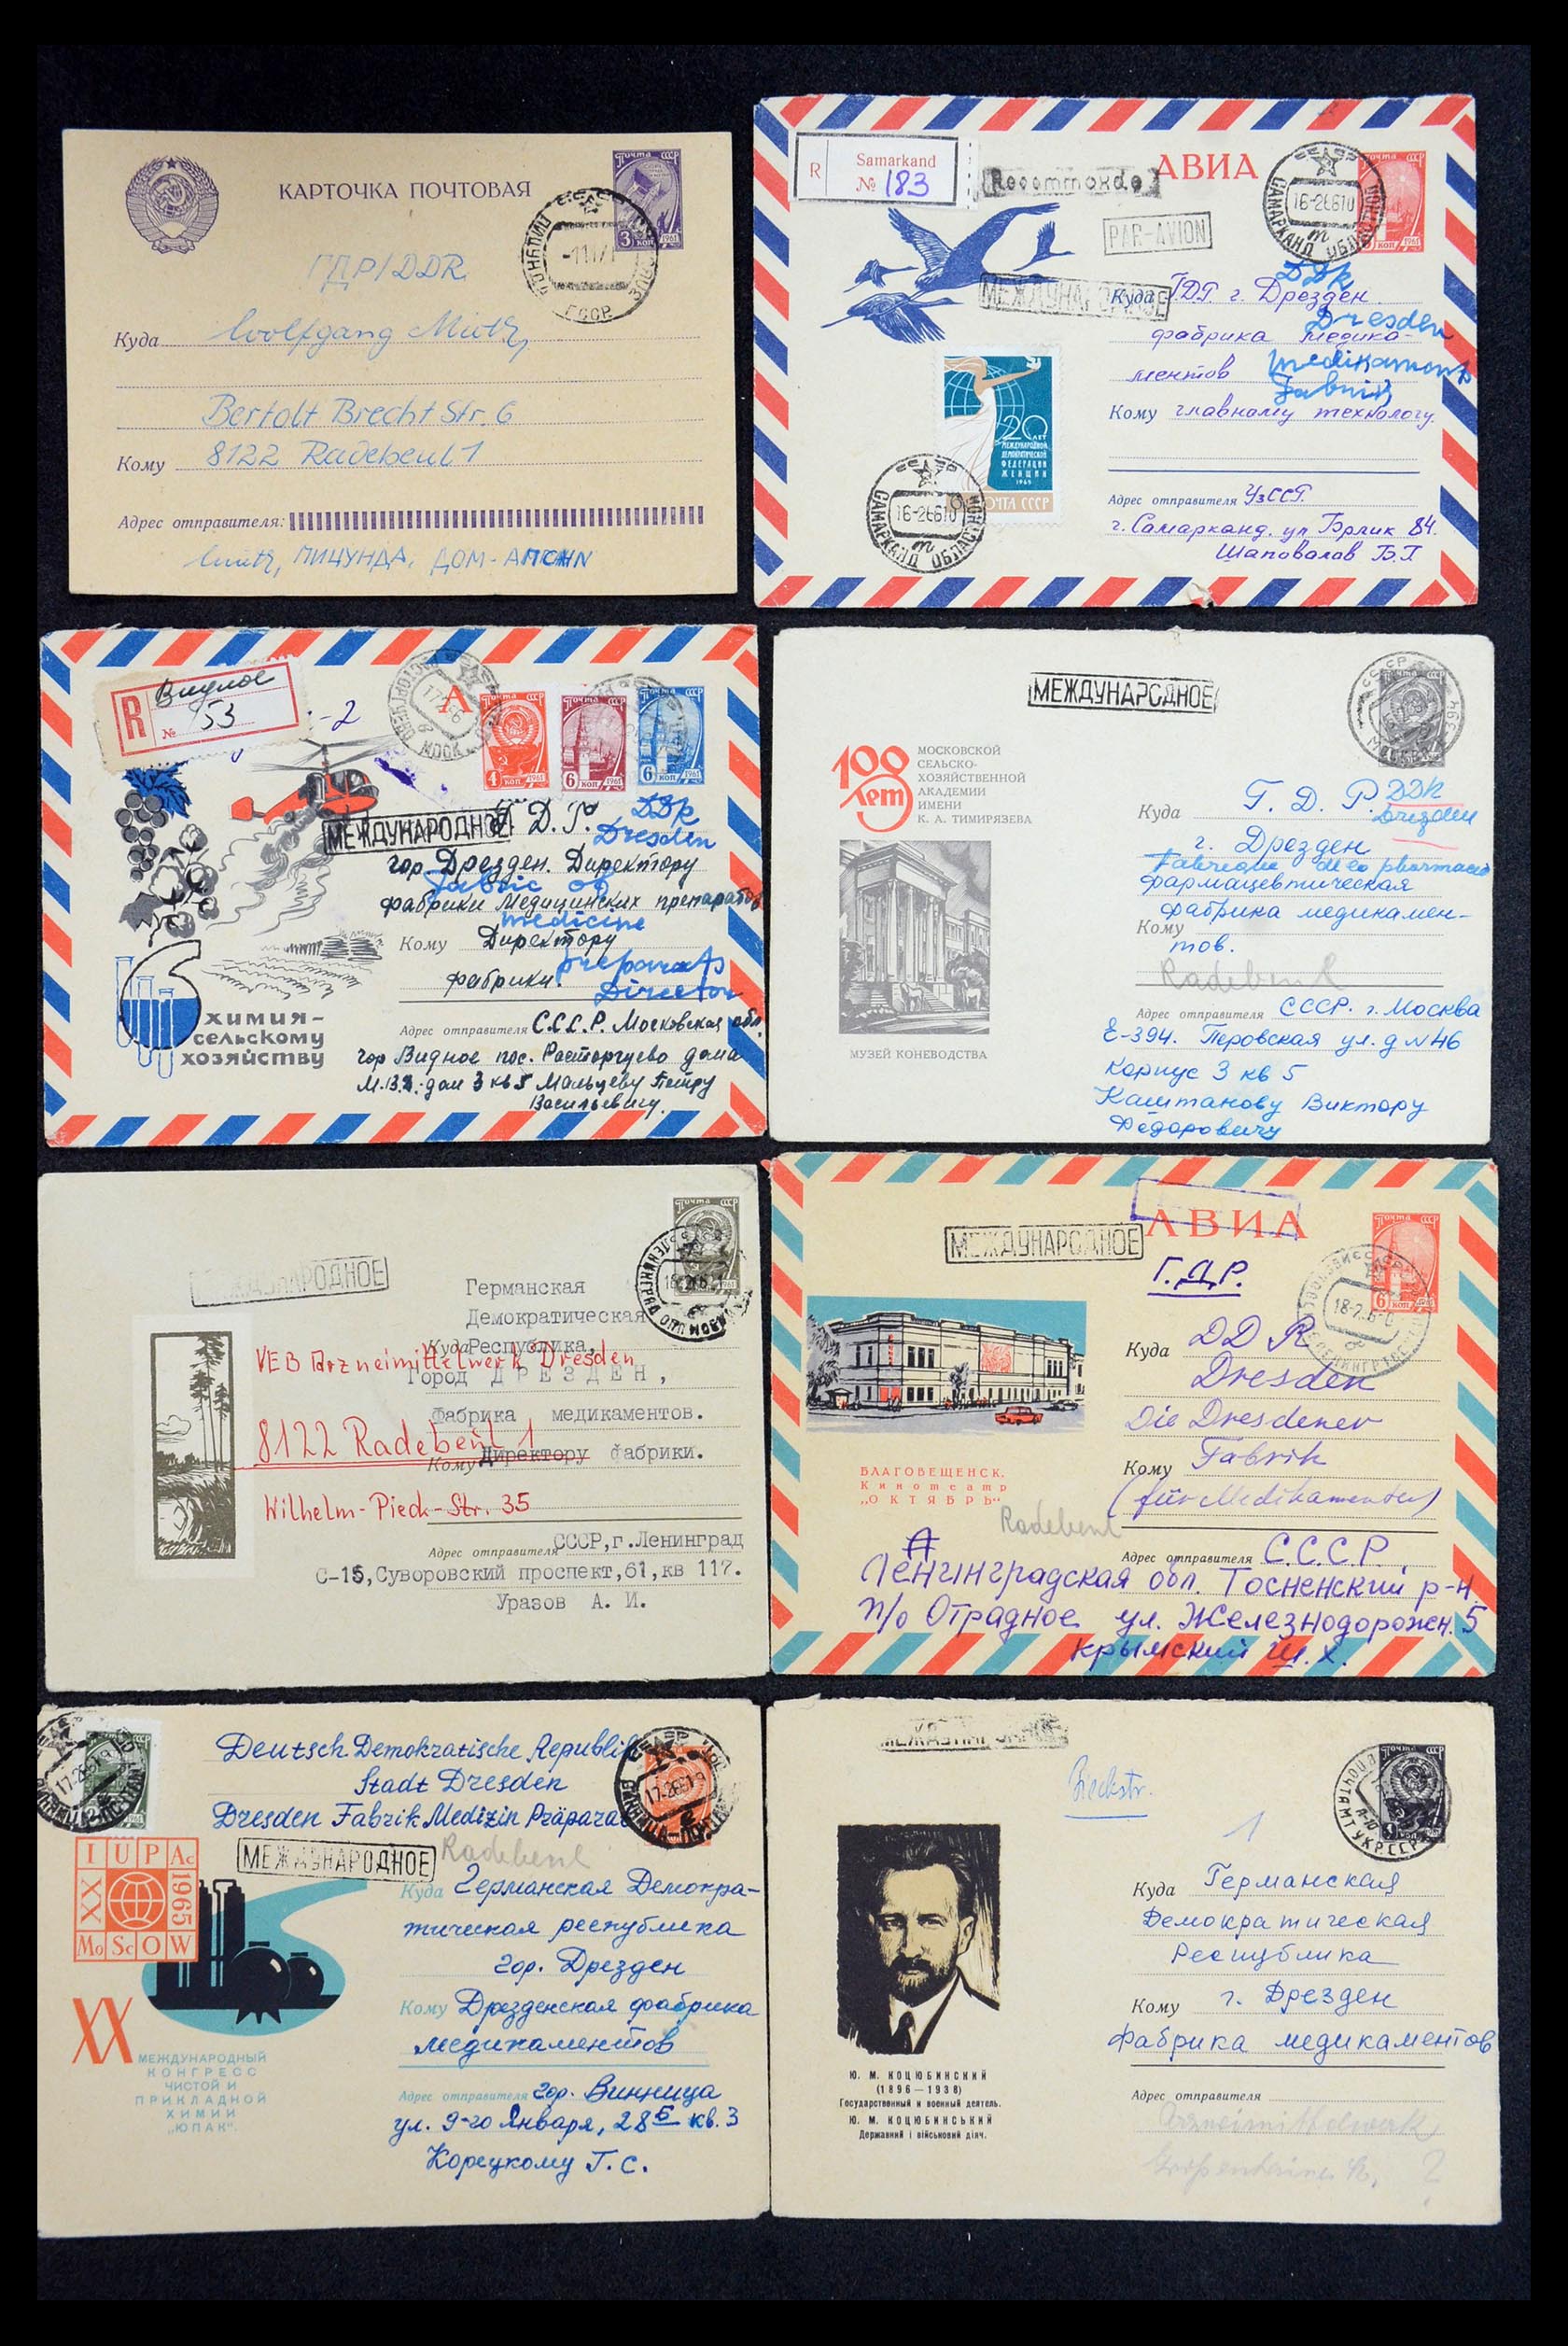 КАРТОЧКА ПОЧТОВАЯ
Почта СССР
3 коп 1961
ГДР/DDR
Куда Wolfgang
Bertolt Brecht Str. 6
Кому 8122 Radebeul 1
Адрес отправителя:
ПИЦУНДА, ДОМ-АПСНЫ
R Samarkand
№ 183
Recommande
АВИА
PAR-AVION
МЕЖДУНАРОДНОЕ
Почта СССР
коп 1961
САМАРКАНД ОБЛАСТНОЙ
16-26610
DDR
Куда ГДР г. Дрезден
Dresden
фабрика медика-
ментов
Medikament
Fabrik
Кому главному технологу.
20 ЛЕТ
МЕЖДУНАРОДНОЙ
ДЕМОКРАТИЧЕСКОЙ
ФЕДЕРАЦИИ
ЖЕНЩИН
1965
ПОЧТА СССР
САМАРКАНД ОБЛАСТНОЙ
16-26610
Адрес отправителя УзССР.
г. Самарканд. ул Брлик 84.
Шаповалов Б.Г
R Видное
№ 53
-2
А
Почта СССР
4 коп 1961
Почта СССР
6 коп 1961
Почта СССР
6 коп 1961
МЕЖДУНАРОДНОЕ
Д. Р.
DDR
Dresden
гор. Дрезден. Директору
Fabric of
фабрики Медицинских препаратов
medicine
Кому Директору
фабрики.
preparats
Director
ХИМИЯ-
СЕЛЬСКОМУ
ХОЗЯЙСТВУ
Адрес отправителя С.С.С.Р. Московская обл.
гор Видное пос. Расторгуево дома
дом 3 кв 5 Мальцеву Петру
Васильевичу.
МЕЖДУНАРОДНОЕ
100 лет
МОСКОВСКОЙ
СЕЛЬСКО-
ХОЗЯЙСТВЕННОЙ
АКАДЕМИИ
ИМЕНИ
К. А. ТИМИРЯЗЕВА
МУЗЕЙ КОНЕВОДСТВА
Куда Г. Д. Р.
DDR
Dresden
г. Дрезден
фармацевтическая
фабрика медикамен-
Кому
тов.
Radebeul
Адрес отправителя СССР. г. Москва
Е-394. Перовская ул. д N 46
Корпус 3 кв 5
Каштанову Виктору
Федаровичу
МЕЖДУНАРОДНОЕ
Почта СССР
1961
Германская
Демократическая
Куда Республика,
VEB Arzneimittelwerk Dresden
Город ДРЕЗДЕН,
Фабрика медикаментов.
8122 Radebeul 1
Кому Директору фабрики.
Wilhelm-Pieck-Str. 35
Адрес отправителя СССР, г. Ленинград
С-15, Суворовский проспект, 61, кв 117.
Уразов А. И.
АВИА
МЕЖДУНАРОДНОЕ
Почта СССР
6 коп 1961
Г.Д.Р.
Куда DDR
Dresden
Die Dresdener
Кому Fabrik
(für Medikamenten)
БЛАГОВЕЩЕНСК.
Кинотеатр
„ОКТЯБРЬ“
Radebeul
Адрес отправителя С.С.С.Р.
А
Ленинградская обл. Тосненский р-н
п/о Отрадное ул. Железнодорожн. 5
Крымский Ш. Х.
Deutsch Demokratische Republik
Stadt Dresden
Dresden Fabrik Medizin Präparat
МЕЖДУНАРОДНОЕ
Radebeul
IUPAc
XX
1965
MoScOW
XX
МЕЖДУНАРОДНЫЙ
КОНГРЕСС
ЧИСТОЙ И
ПРИКЛАДНОЙ
ХИМИИ
„ЮПАК“.
Куда Германская Демокра-
тическая республика
гор. Дрезден
Кому Дрезденская фабрика
медикаментов
Адрес отправителя гор. Винница
ул. 9-го Января, 28 б кв. 3
Корецкому Г. С.
Почта СССР
Pieckstr.
1
Куда Германская
Демократическая
Республика
Кому г. Дрезден
Фабрика медикаментов
Ю. М. КОЦЮБИНСКИЙ
(1896—1938)
Государственный и военный деятель.
Ю. М. КОЦЮБИНСЬКИЙ
Державний і військовий діяч.
Адрес отправителя
Arzneimittelwerk
?